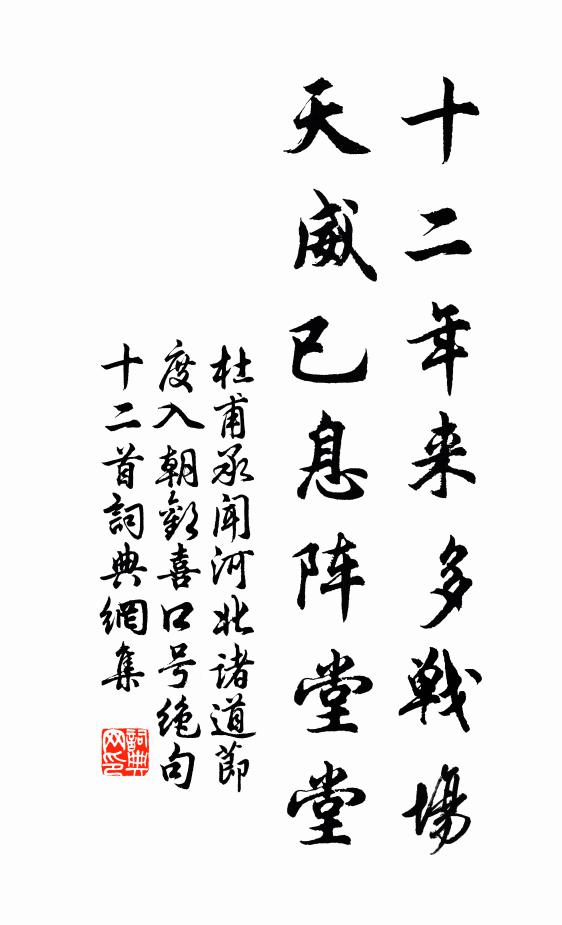 十二年来多戦場
天威已息阵堂堂
杜甫承闻河北诸道節
度入朝歡喜口号绝句
十二首詞典網集
詞典
网印